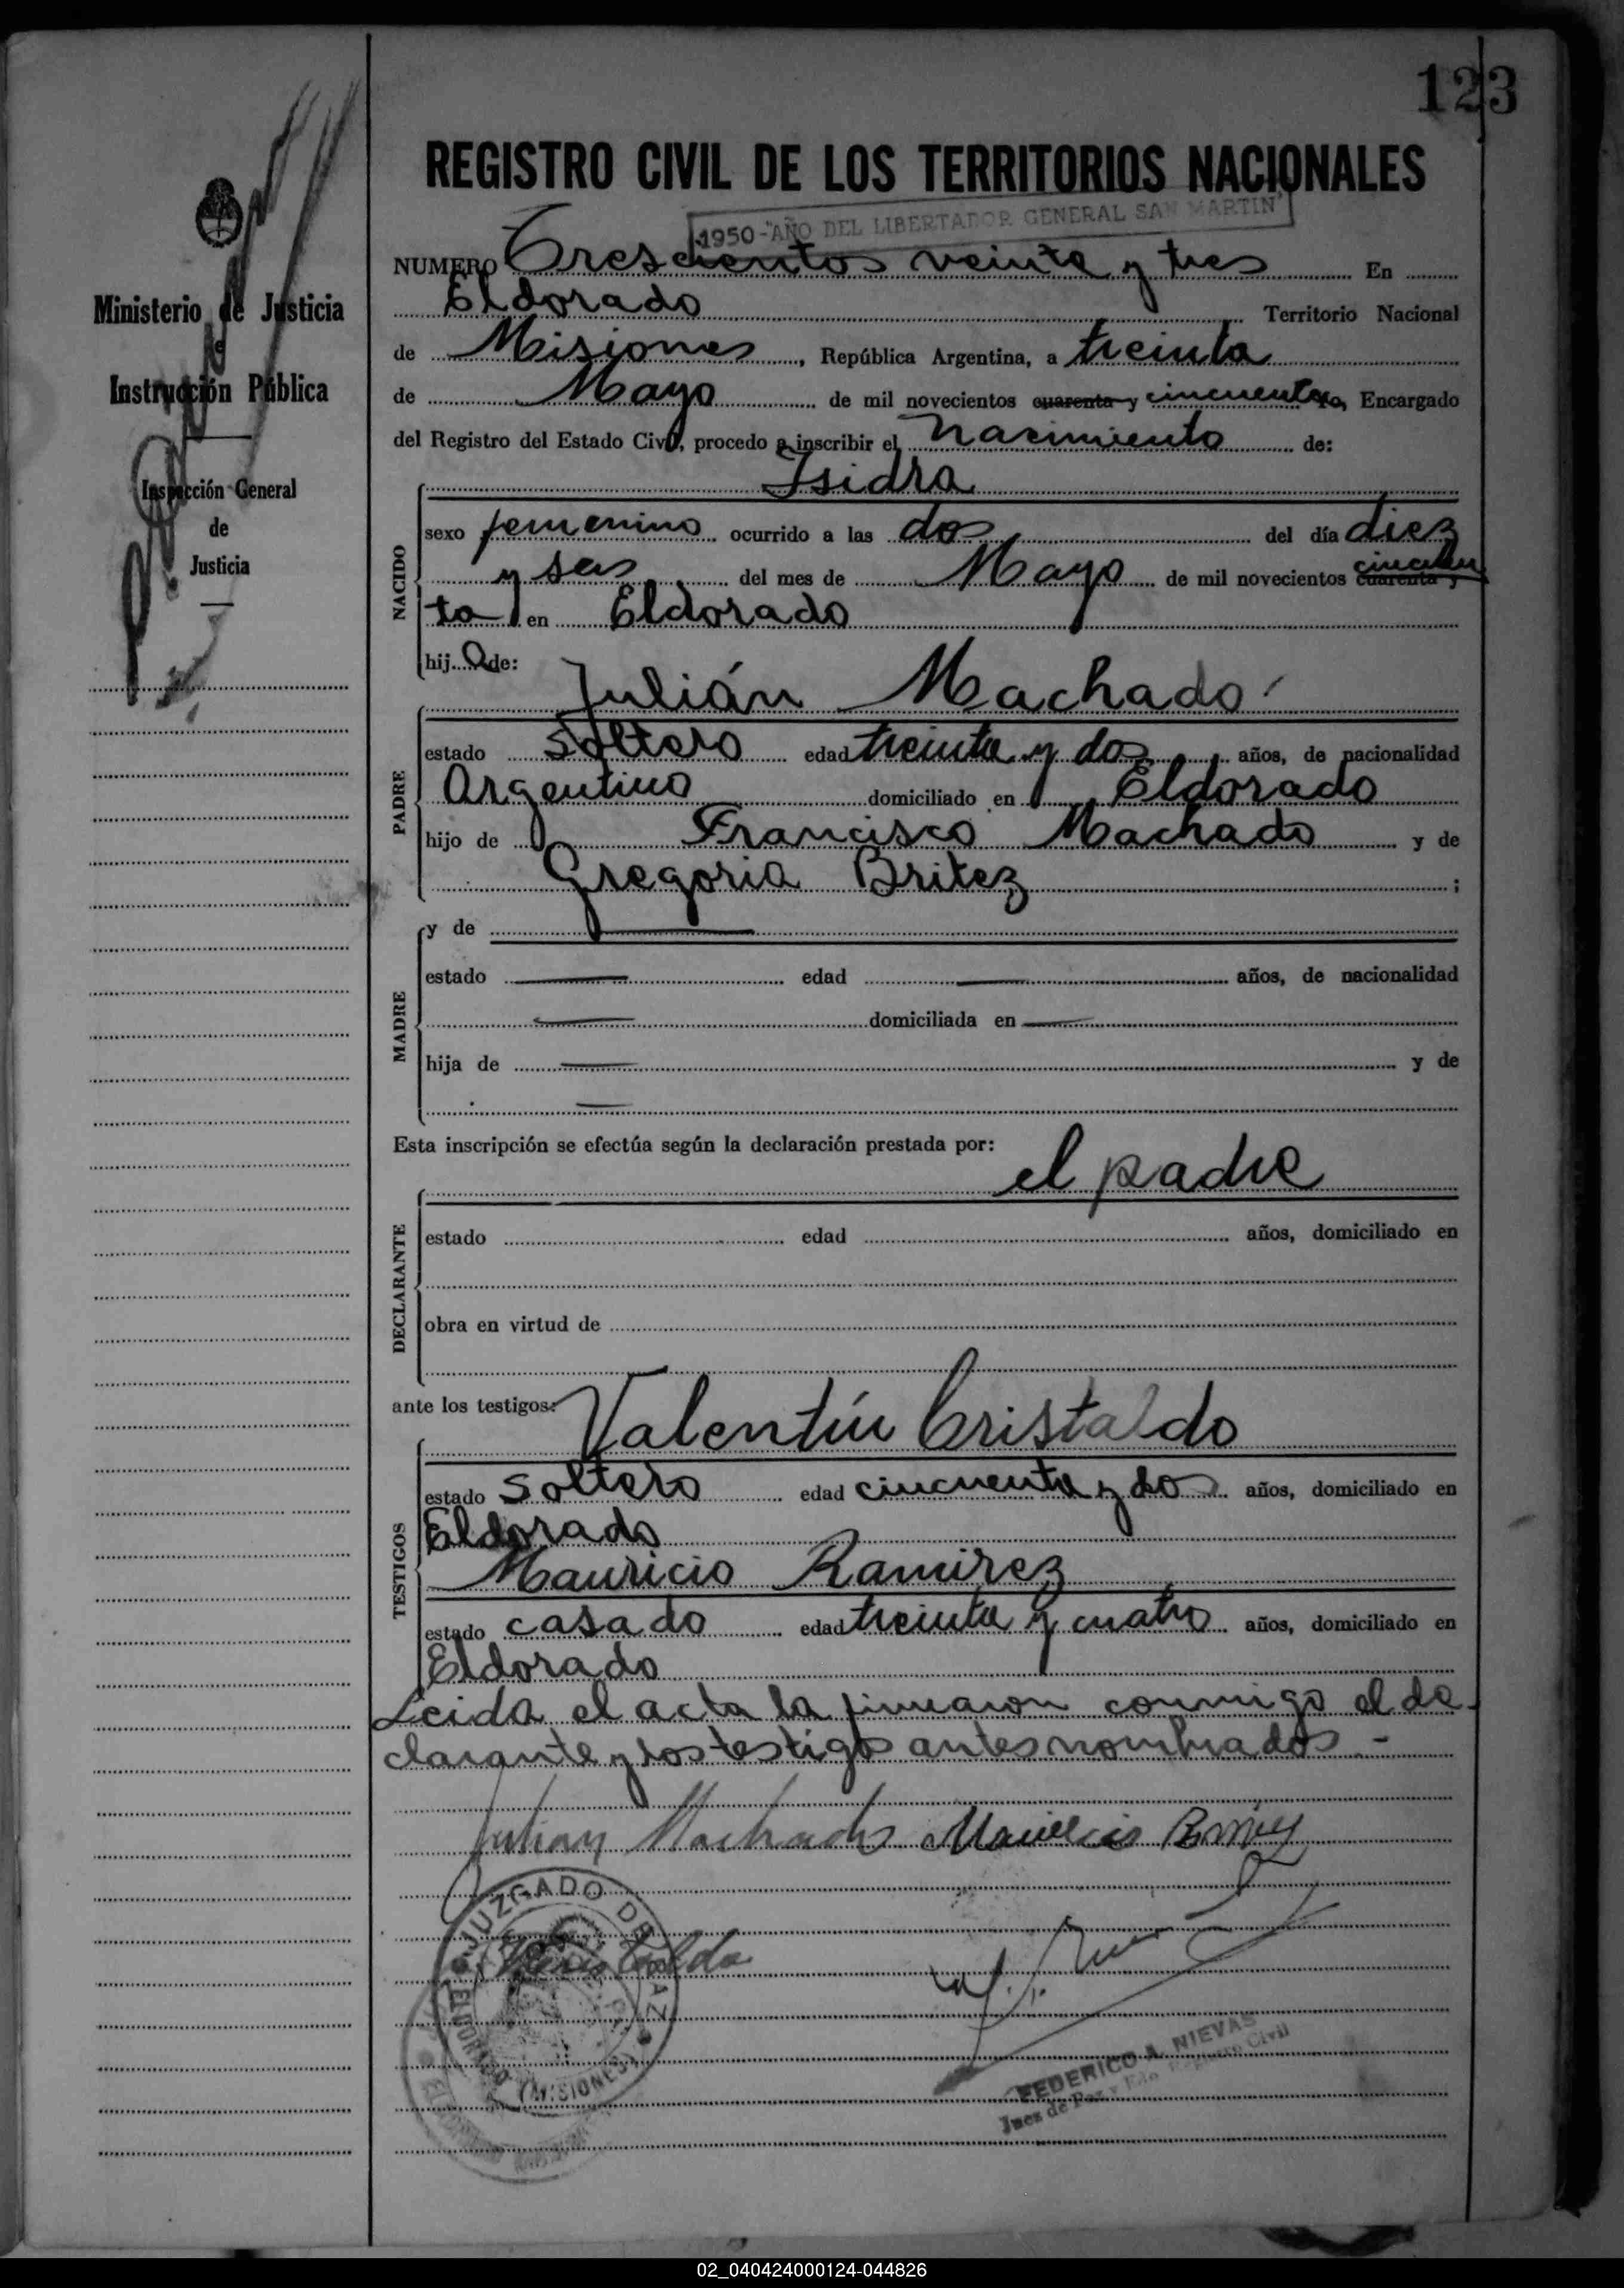 123
REGISTRO CIVIL DE LOS TERRITORIOS NACIONALES
1950-"AÑO DEL LIBERTADOR GENERAL SAN MARTIN"
NUMERO Trescientos veinte y tres En
Eldorado Territorio Nacional
de Misiones, República Argentina, a treinta
de Mayo de mil novecientos cuarenta y cincuenta yo, Encargado
del Registro del Estado Civil, procedo a inscribir el nacimiento de:
Isidra
NACIDO
sexo femenino ocurrido a las dos del día diez
y seis del mes de Mayo de mil novecientos cuarenta y cincuen
ta en Eldorado
hija de:
Julián Machado
PADRE
estado soltero edad treinta y dos años, de nacionalidad
Argentino domiciliado en Eldorado
hijo de Francisco Machado y de
Gregoria Britez ;
MADRE
y de
estado edad años, de nacionalidad
domiciliada en
hija de y de
Esta inscripción se efectúa según la declaración prestada por:
el padre
DECLARANTE
estado edad años, domiciliado en
obra en virtud de
ante los testigos: Valentín Cristaldo
TESTIGOS
estado soltero edad cincuenta y dos años, domiciliado en
Eldorado
Mauricio Ramirez
estado casado edad treinta y cuatro años, domiciliado en
Eldorado
Leida el acta la firmaron conmigo el de-
clarante y los testigos antes nombrados.-
Julian Machado
JUZGADO DE PAZ
ELDORADO (MISIONES)
FEDERICO A. NIEVAS
Juez de Paz y Edo Registro Civil
Ministerio de Justicia
e
Instrucción Pública
Inspección General
de
Justicia
02_040424000124-044826